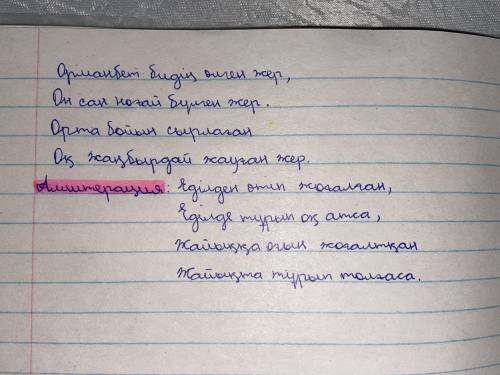 Орманбет бидің өлген жер,
Он сан ноғай бүлген жер.
Орта бойын сырлаған
Оқ жаңбырдай жауған жер.
Аллитерация: Еділден өтіп жоғалған,
Еділде тұрып оқ атса,
Жайыққа оғын жоғалтқан
Жайықта тұрып толғаса.